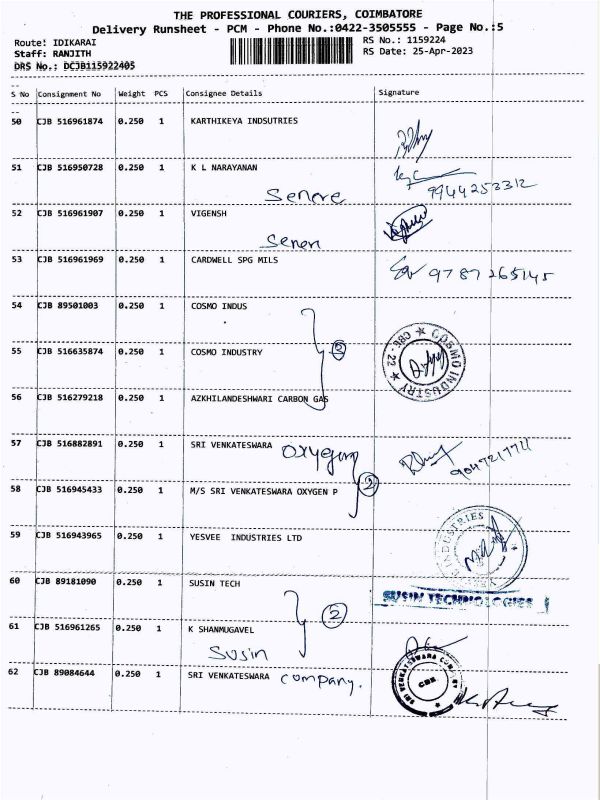 THE PROFESSIONAL COURIERS, COIMBATORE
Delivery Runsheet - PCM - Phone No.:0422-3505555 - Page No.:5
Route: IDIKARAI
RS No.: 1159224
Staff: RANJITH
RS Date: 25-Apr-2023
DRS No.: DCJB115922405
S No Consignment No Weight PCS Consignee Details Signature
50 CJB 516961874 0.250 1 KARTHIKEYA INDSUTRIES
51 CJB 516950728 0.250 1 K L NARAYANAN
9944253312
52 CJB 516961907 0.250 1 VIGENSH
53 CJB 516961969 0.250 1 CARDWELL SPG MILS
9787265145
54 CJB 89501003 0.250 1 COSMO INDUS
55 CJB 516635874 0.250 1 COSMO INDUSTRY 2
COSMO INDUSTRY CBE-22
56 CJB 516279218 0.250 1 AZKHILANDESHWARI CARBON GAS
57 CJB 516882891 0.250 1 SRI VENKATESWARA
58 CJB 516945433 0.250 1 M/S SRI VENKATESWARA OXYGEN P 2
59 CJB 516943965 0.250 1 YESVEE INDUSTRIES LTD
INDUSTRIES
60 CJB 89181090 0.250 1 SUSIN TECH
SUSIN TECHNOLOGIES
2
61 CJB 516961265 0.250 1 K SHANMUGAVEL
Susin
62 CJB 89084644 0.250 1 SRI VENKATESWARA company.
SRI VENKATESWARA COMPANY